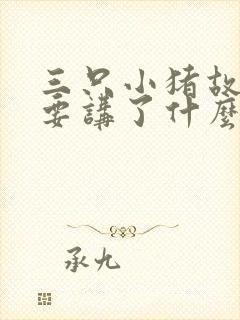 三只小猪故
要講了什麼
承九